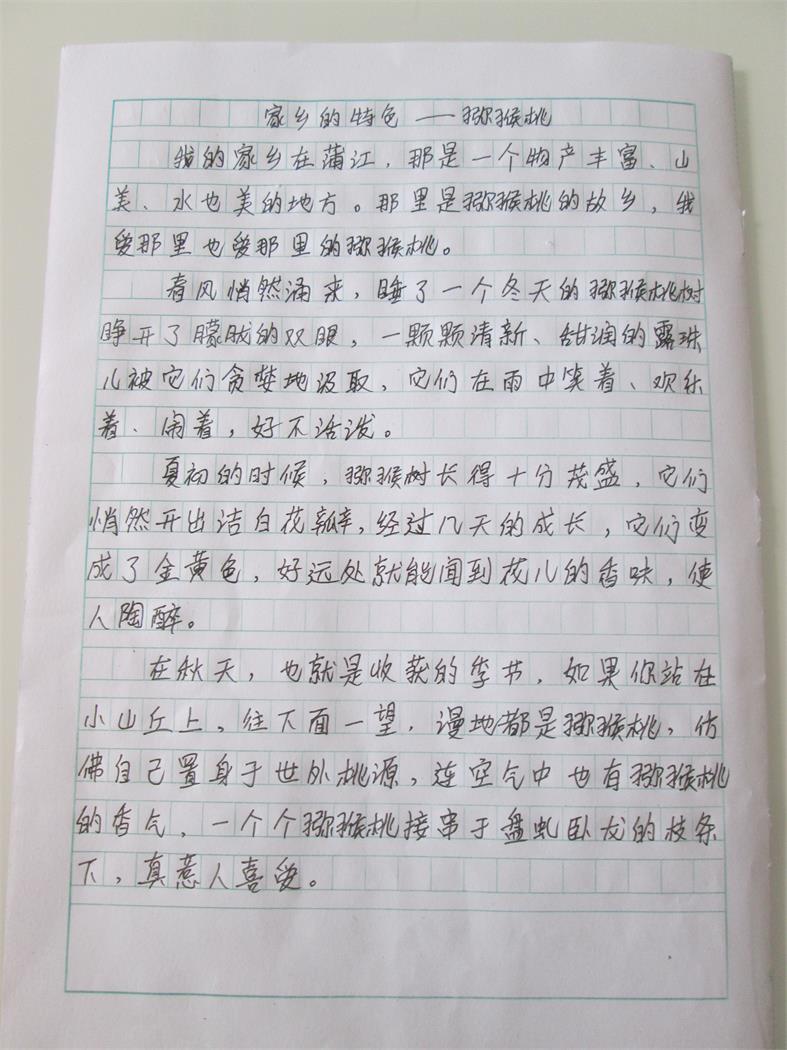 家乡的特色——猕猴桃
我的家乡在蒲江，那是一个物产丰富、山
美、水也美的地方。那里是猕猴桃的故乡，我
爱那里也爱那里的猕猴桃。
春风悄然涌来，睡了一个冬天的猕猴桃树
睁开了朦胧的双眼，一颗颗清新、甜润的露珠
儿被它们贪婪地汲取，它们在雨中笑着、欢乐
着、闹着，好不活泼。
夏初的时候，猕猴树长得十分茂盛，它们
悄然开出洁白花瓣，经过几天的成长，它们变
成了金黄色，好远处就能闻到花儿的香味，使
人陶醉。
在秋天，也就是收获的季节，如果你站在
小山丘上，往下面一望，漫地都是猕猴桃，仿
佛自己置身于世外桃源，连空气中也有猕猴桃
的香气，一个个猕猴桃接串于盘虬卧龙的枝条
下，真惹人喜爱。